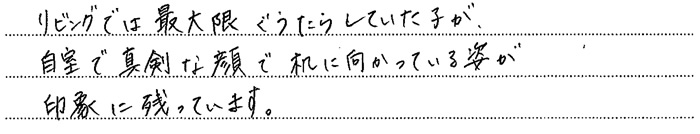 リビングでは最大限ぐうたらしていた子が、
自室で真剣な顔で机に向かっている姿が
印象に残っています。